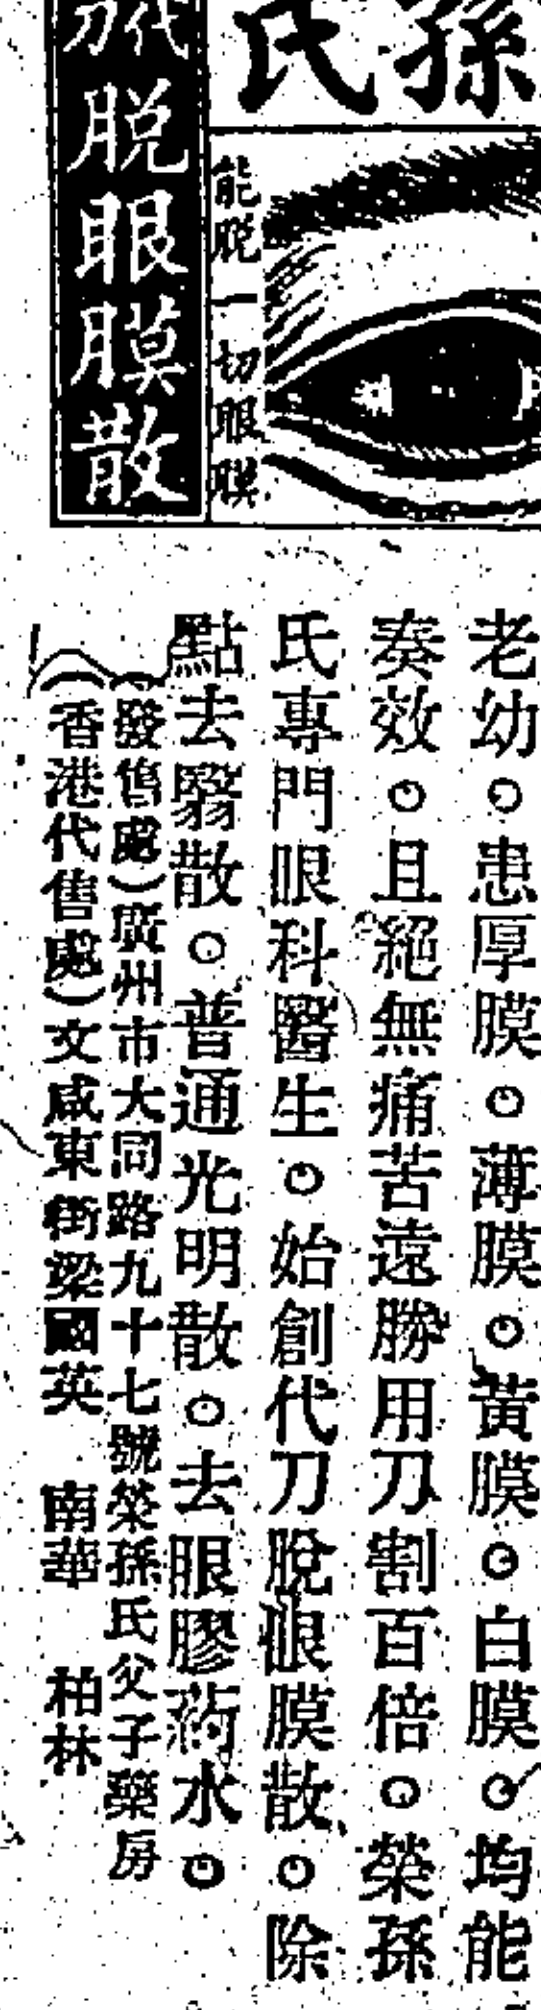 孫氏
能脫一切眼膜
代脫眼膜散
老幼。患厚膜。薄膜。黃膜。白膜。均能
奏效。且絕無痛苦遠勝用刀割百倍。榮孫
氏專門眼科醫生。始創代刀脫眼膜散。除
點去翳散。普通光明散。去眼膠药水。
(發售處)廣州市大同路九十七號榮孫氏父子藥房
(香港代售處)文咸東街梁國英 南華 柏林